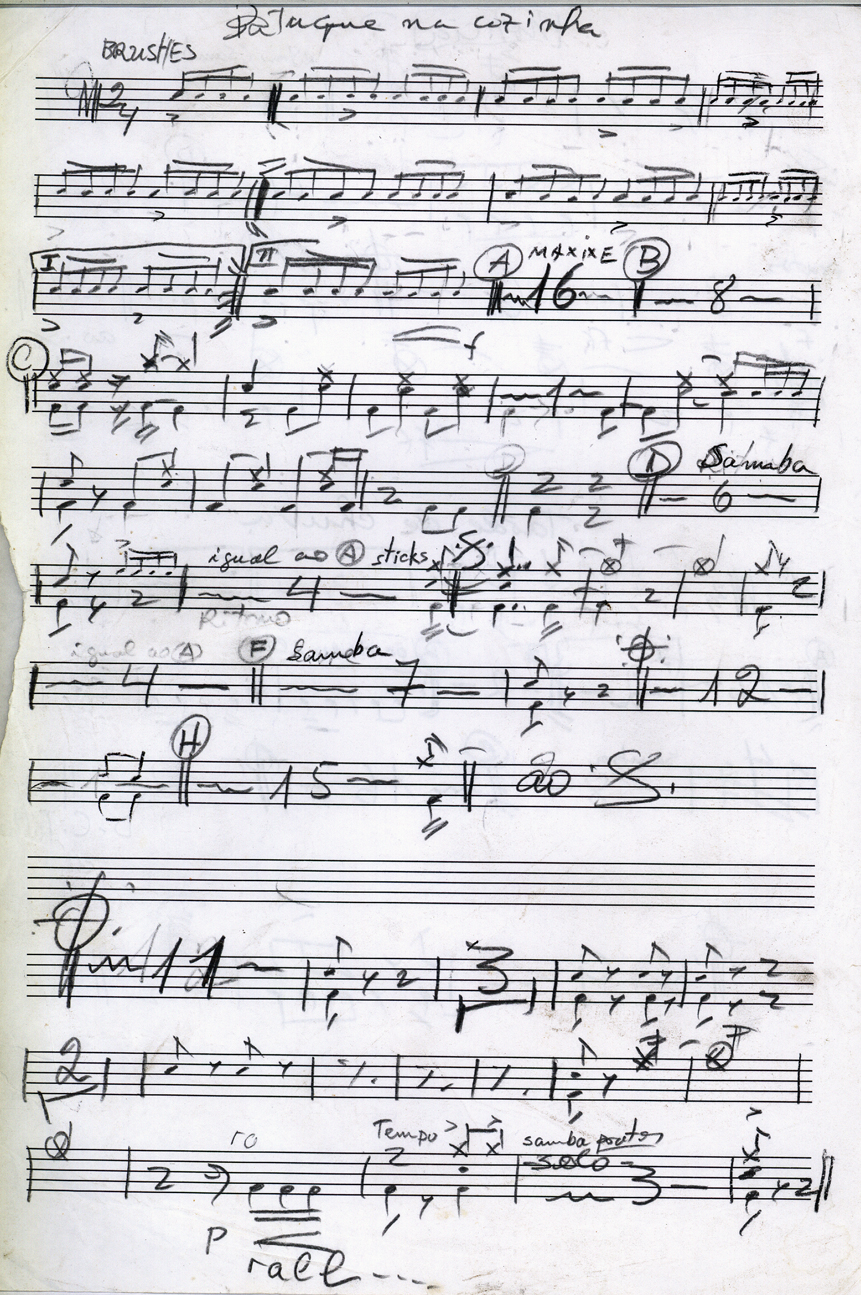 Batuque na cozinha
BRUSHES
2/4
I II A MAXIXE B
16 8
C f
1
D D Samba
6
igual ao A sticks
4
Ritmo
igual ao A F Samba
4 7 12
H
1 15 ao
11
3
2
Tempo samba pratos
solo
3
P
rall ----